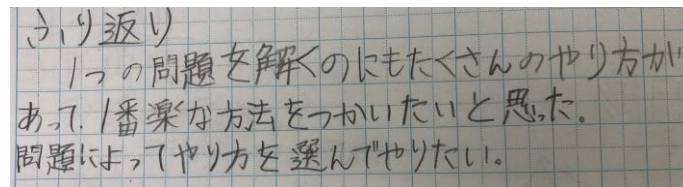 ふり返り
1つの問題を解くのにもたくさんのやり方が
あって、1番楽な方法をつかいたいと思った。
問題によってやり方を選んでやりたい。